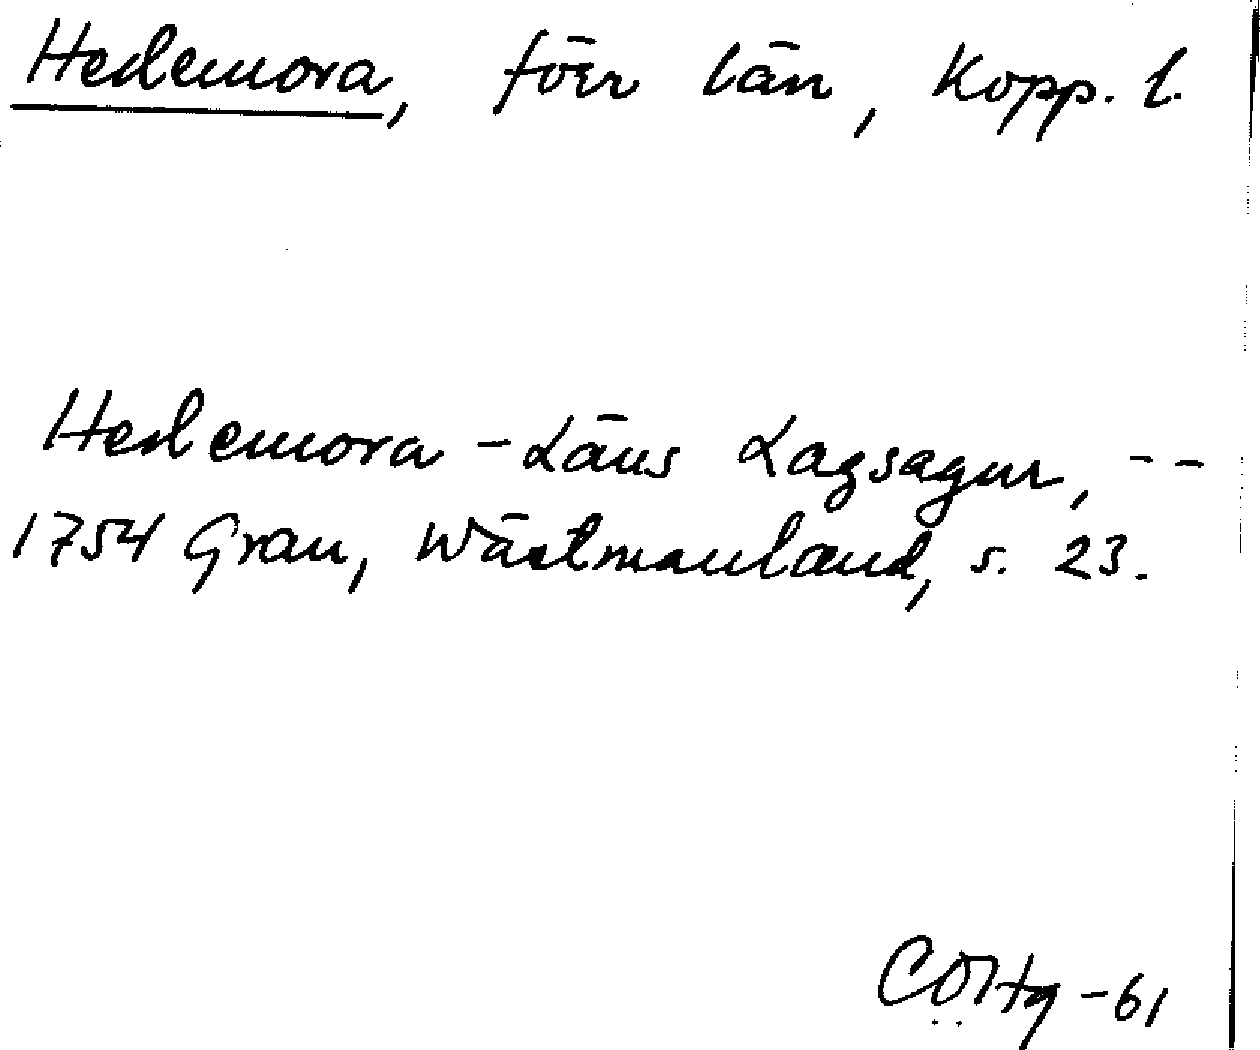 Hedemora, förr län, Kopp. l.
Hedemora-Läns Lagsagur, --
1754 Grau, Wästmanland, s. 23.
-61